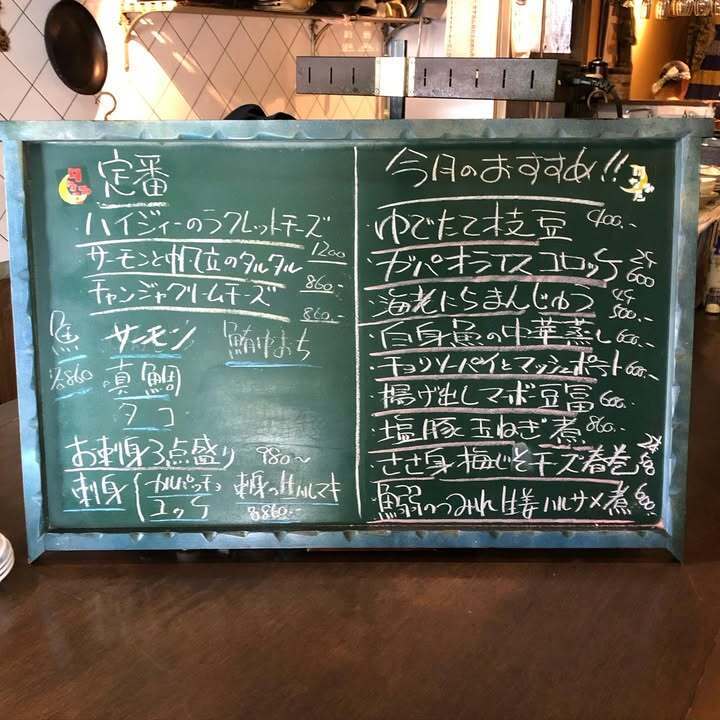 定番
ハイジィーのラクレットチーズ
1200
サーモンと帆立のタルタル
860.-
チャンジャクリームチーズ
860.-
魚 サーモン 鮪中おち
860 真鯛
タコ
お刺身3点盛り 980~
刺身 カルパッチョ 刺身の生ハルマキ
ユッケ 860.-
今月のおすすめ!!
・ゆでたて枝豆 400.-
・ガパオライスコロッケ 2ケ 600
・海老にらまんじゅう 4ケ 500.-
・白身魚の中華蒸し 600.-
・チョリソーパイとマッシュポテート 600.-
・揚げ出しマーボ豆富 600.-
・塩豚と玉ねぎ煮 860.-
・ささ身梅じそチーズ春巻
鰯のつみれ生姜ハルサメ煮 600.-